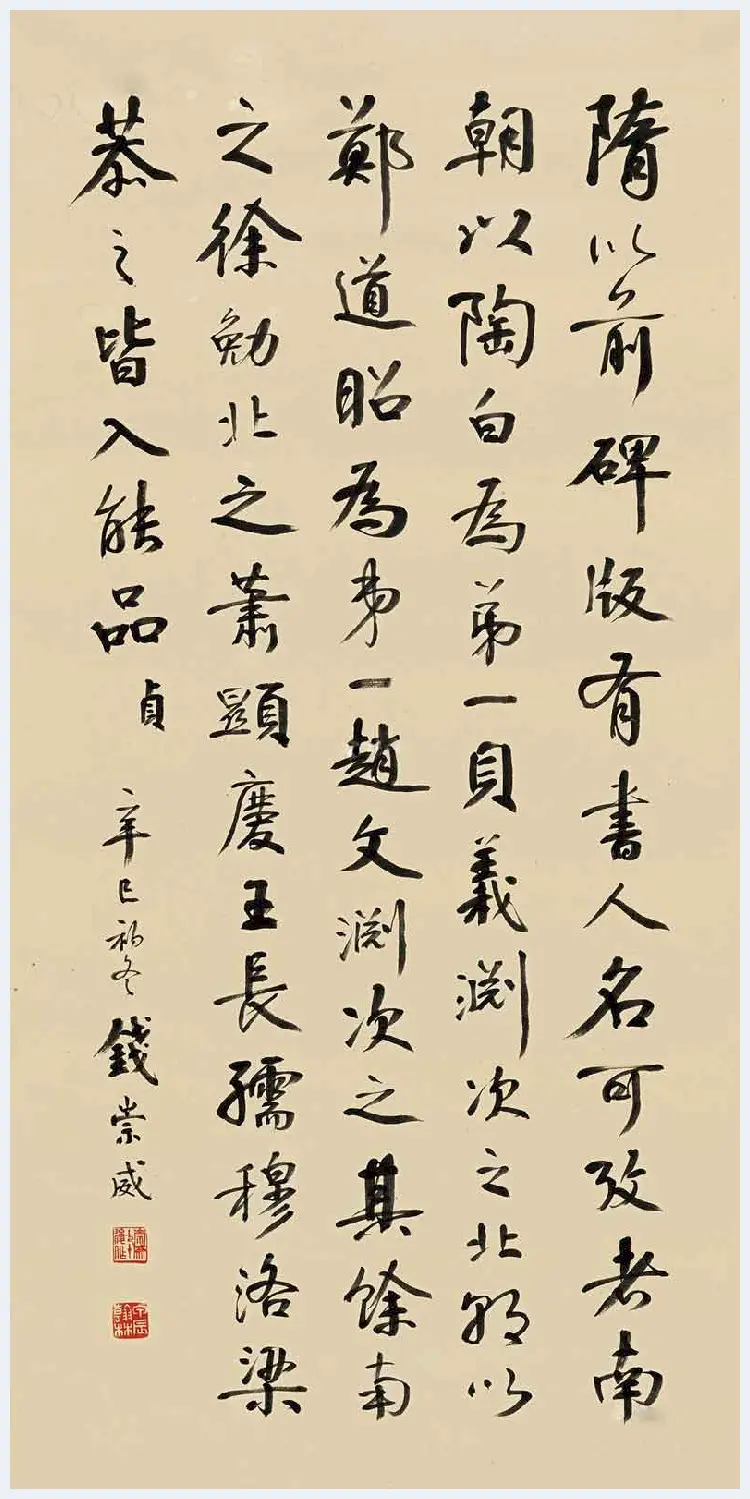 隋以前碑版有書人名可攷者南
朝以陶白為弟一貝義淵次之北朝以
鄭道昭為弟一趙文淵次之其餘南
之徐勉北之蕭顯慶王長孺穆洛梁
恭之皆入能品 貞
辛巳初冬 錢崇威